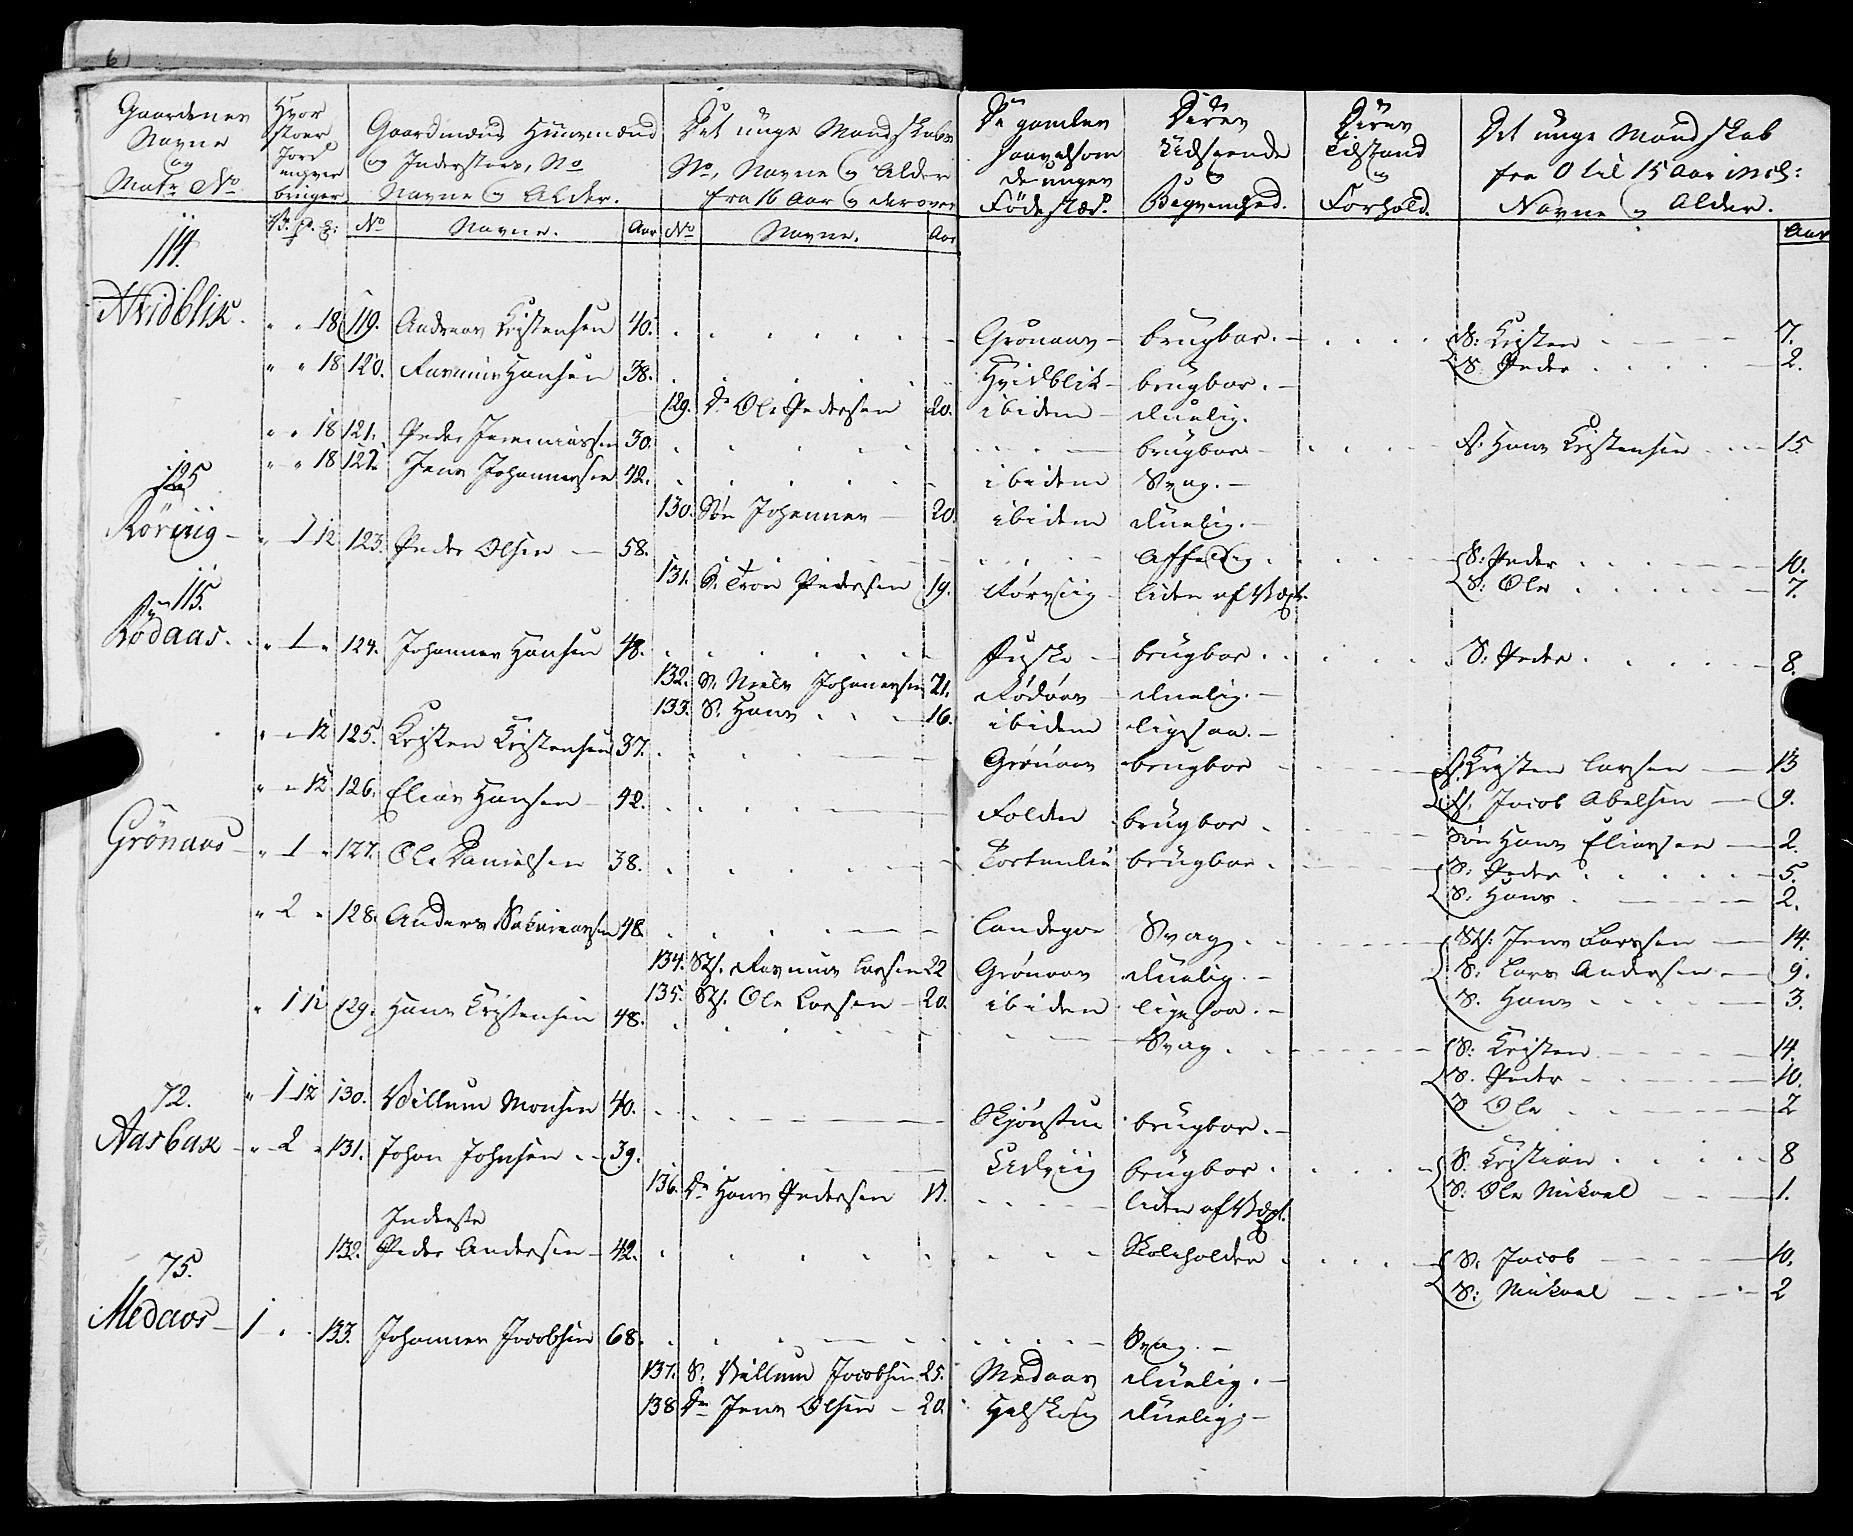 6)
Gaardenes Navne og Matr No.
Hvor stoer Jord enhver bruger
Gaardmænd Huusmænd og Inderster, No Navne og Alder.
Det unge Mandskabs No, Navne og Alder fra 16 Aar og derover
De gamles saavelsom de unges Fødested.
Deres Udseende og Beqvemhed.
Deres Tilstand og Forhold.
Det unge Mandskab fra 0 til 15 Aar incl: Navne og Alder.
V. P. No Navne. Aar No Navne. Aar Aar
114.
Hvidblik. " " 18 119. Andreas Kristensen 40. Grønaas brugbar. S: Kristen 7.
S: Peder 2.
" " 18 120. Rasmus Hansen 38. Hvidblik brugbar.
129. Dr Ole Pedersen 20. ibidem duelig.
" " 18 121. Peder Jeremiassen 30. brugbar S: Hans Kristensen 15
" " 18 122. Jens Johannessen 42. ibidem Svag.
130. Søn Johannes 20. ibidem duelig.
125
Rörviig " 1 12 123. Peder Olsen 58. Affeldig S: Peder 10.
S: Ole 7.
131. S. Tron Pedersen 19. Rørviig liden af Væxt.
115.
Rödaas. " 1 " 124. Johannes Hansen 48. brugbar S: Peder 8.
132. S. Niels Johannesen 21. Rödaas duelig.
133. S. Hans 16. ibidem ligesaa.
" " 12 125. Kristen Kristensen 37. Grönaas brugbar Kristen Larsen 13
Jacob Abelsen 9.
" " 12 126. Elias Hansen 42. Folden brugbar Søn Hans Eliassen 2.
Grönaas " 1 " 127. Ole Danielsen 38. brugbar S: Peder 5.
S: Hans 2.
" 2 " 128. Anders 48. Landegoe Svag. Sts: Jens Larsen 14.
S: Lars Andersen 9.
S. Hans 3.
134. Sts. Rasmus Larsen 22 Grönaas duelig.
135. Sts. Ole Larsen 20. ibidem ligesaa.
" 1 12 129. Hans Kristensen 48. Svag S: Kristen 14.
S. Peder 10.
S Ole 2
" 1 12 130. Villum Monsen 40. Skjönstue brugbar.
72.
Aasbak " 2 " 131. Johan Johnsen 39. Lidviig brugbar S. Kristian 8
S: Ole Mikael 1.
136. Dr Hans Pedersen 17. liden af Væxt.
Inderste
132. Peder Andersen 42. Skoleholder S. Jacob 10.
S: Mikael 2
75.
Medaas 1 133. Johannes Jacobsen 68. Svag.
137. S. Villum Jacobsen 25. Medaas duelig.
138 Dr Jens Olsen 20. duelig